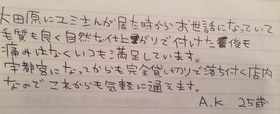 大田原にユミさんが居た時からお世話になっていて
毛質も良く自然な仕上がりで付けた着後も
痛みはなくいつも満足しています。
宇都宮になってからも完全貸し切りで落ち付く店内
なのでこれからも気軽に通えます。
A.K 25歳